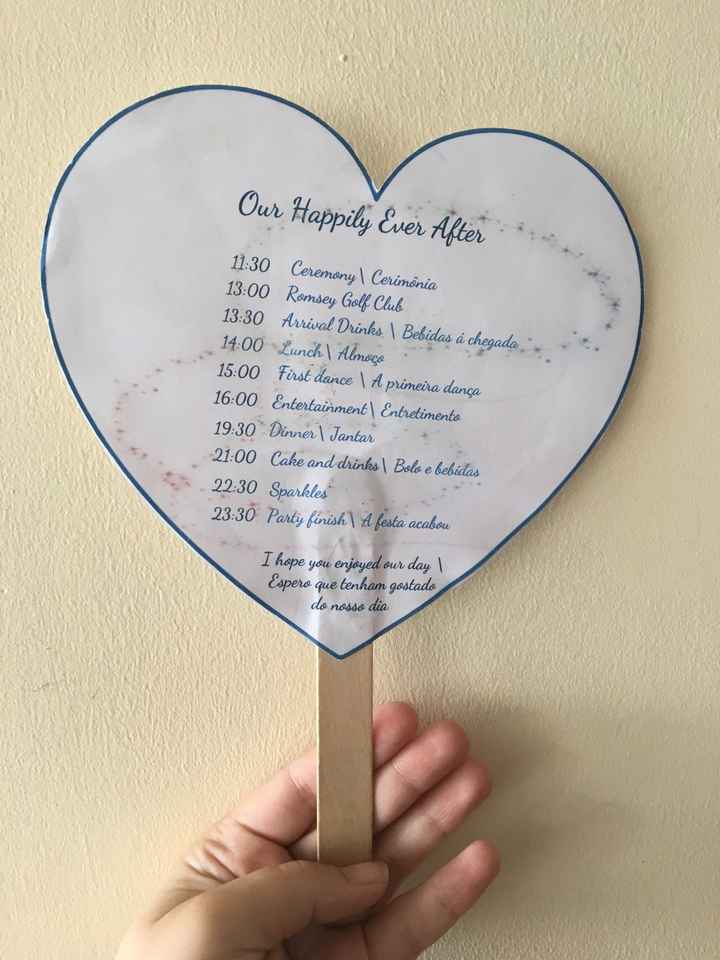 Our Happily Ever After
11:30 Ceremony \ Cerimônia
13:00 Romsey Golf Club
13:30 Arrival Drinks \ Bebidas á chegada
14:00 Lunch \ Almoço
15:00 First dance \ A primeira dança
16:00 Entertainment \ Entretimento
19:30 Dinner \ Jantar
21:00 Cake and drinks \ Bolo e bebidas
22:30 Sparkles
23:30 Party finish \ A festa acabou
I hope you enjoyed our day \
Espero que tenham gostado
do nosso dia